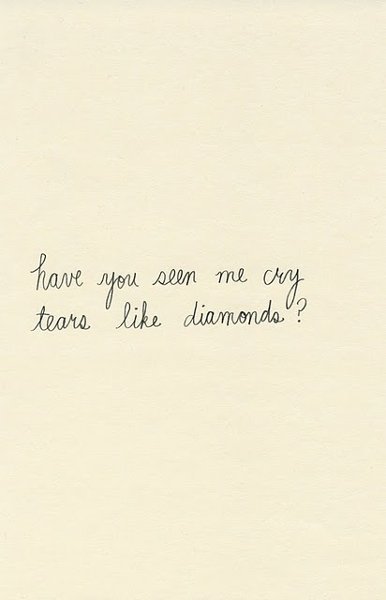 have you seen me cry
tears like diamonds?